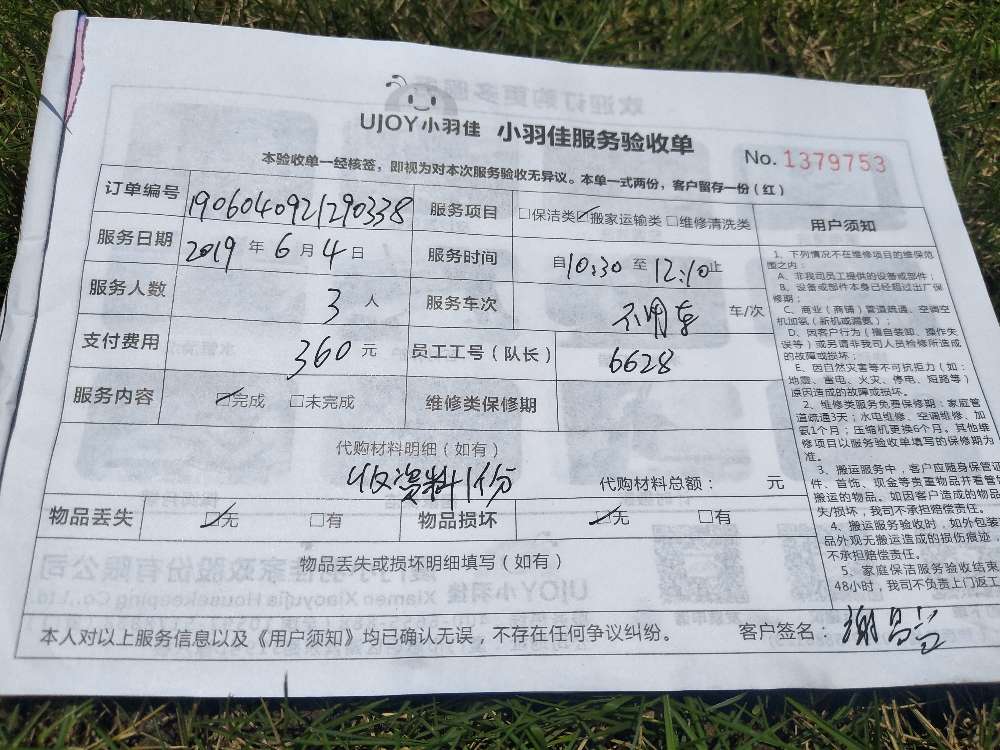 UJOY小羽佳 小羽佳服务验收单
No. 1379753
本验收单一经核签，即视为对本次服务验收无异议。本单一式两份，客户留存一份（红）
订单编号 1906040921290338 服务项目 □保洁类 ☑搬家运输类 □维修清洗类
服务日期 2019 年 6 月 4 日 服务时间 自10:30 至 12:10止
服务人数 3 人 服务车次 不用车 车/次
支付费用 360 元 员工工号（队长） 6628
服务内容 ☑完成 □未完成 维修类保修期
代购材料明细（如有）
收资料1份 代购材料总额： 元
物品丢失 ☑无 □有 物品损坏 ☑无 □有
物品丢失或损坏明细填写（如有）
用户须知
1、下列情况不在维修项目的维保范
围之内：
A、非我司员工提供的设备或部件；
B、设备或部件本身已经超过出厂保
修期；
C、商业（商铺）管道疏通、空调空
机加氨（新机或漏氨）；
D、因客户行为（擅自装卸、操作失
误等）或另请非我司人员检修所造成
的故障或损坏；
E、因自然灾害等不可抗拒力（如：
地震、雷电、火灾、停电、短路等）
原因造成的故障或损坏。
2、维修类服务免费保修期：家庭管
道疏通3天；水电维修、空调维修、加
氨1个月；压缩机更换6个月。其他维
修项目以服务验收单填写的保修期为
准。
3、搬运服务中，客户应随身保管证
件、首饰、现金等贵重物品并看管
搬运的物品。如因客户造成的物品
失/损坏，我司不承担赔偿责任。
4、搬运服务验收时，如外包装
品外观无搬运造成的损伤痕迹，
不承担赔偿责任。
5、家庭保洁服务验收结束
48小时，我司不负责上门返工
本人对以上服务信息以及《用户须知》均已确认无误，不存在任何争议纠纷。 客户签名：谢